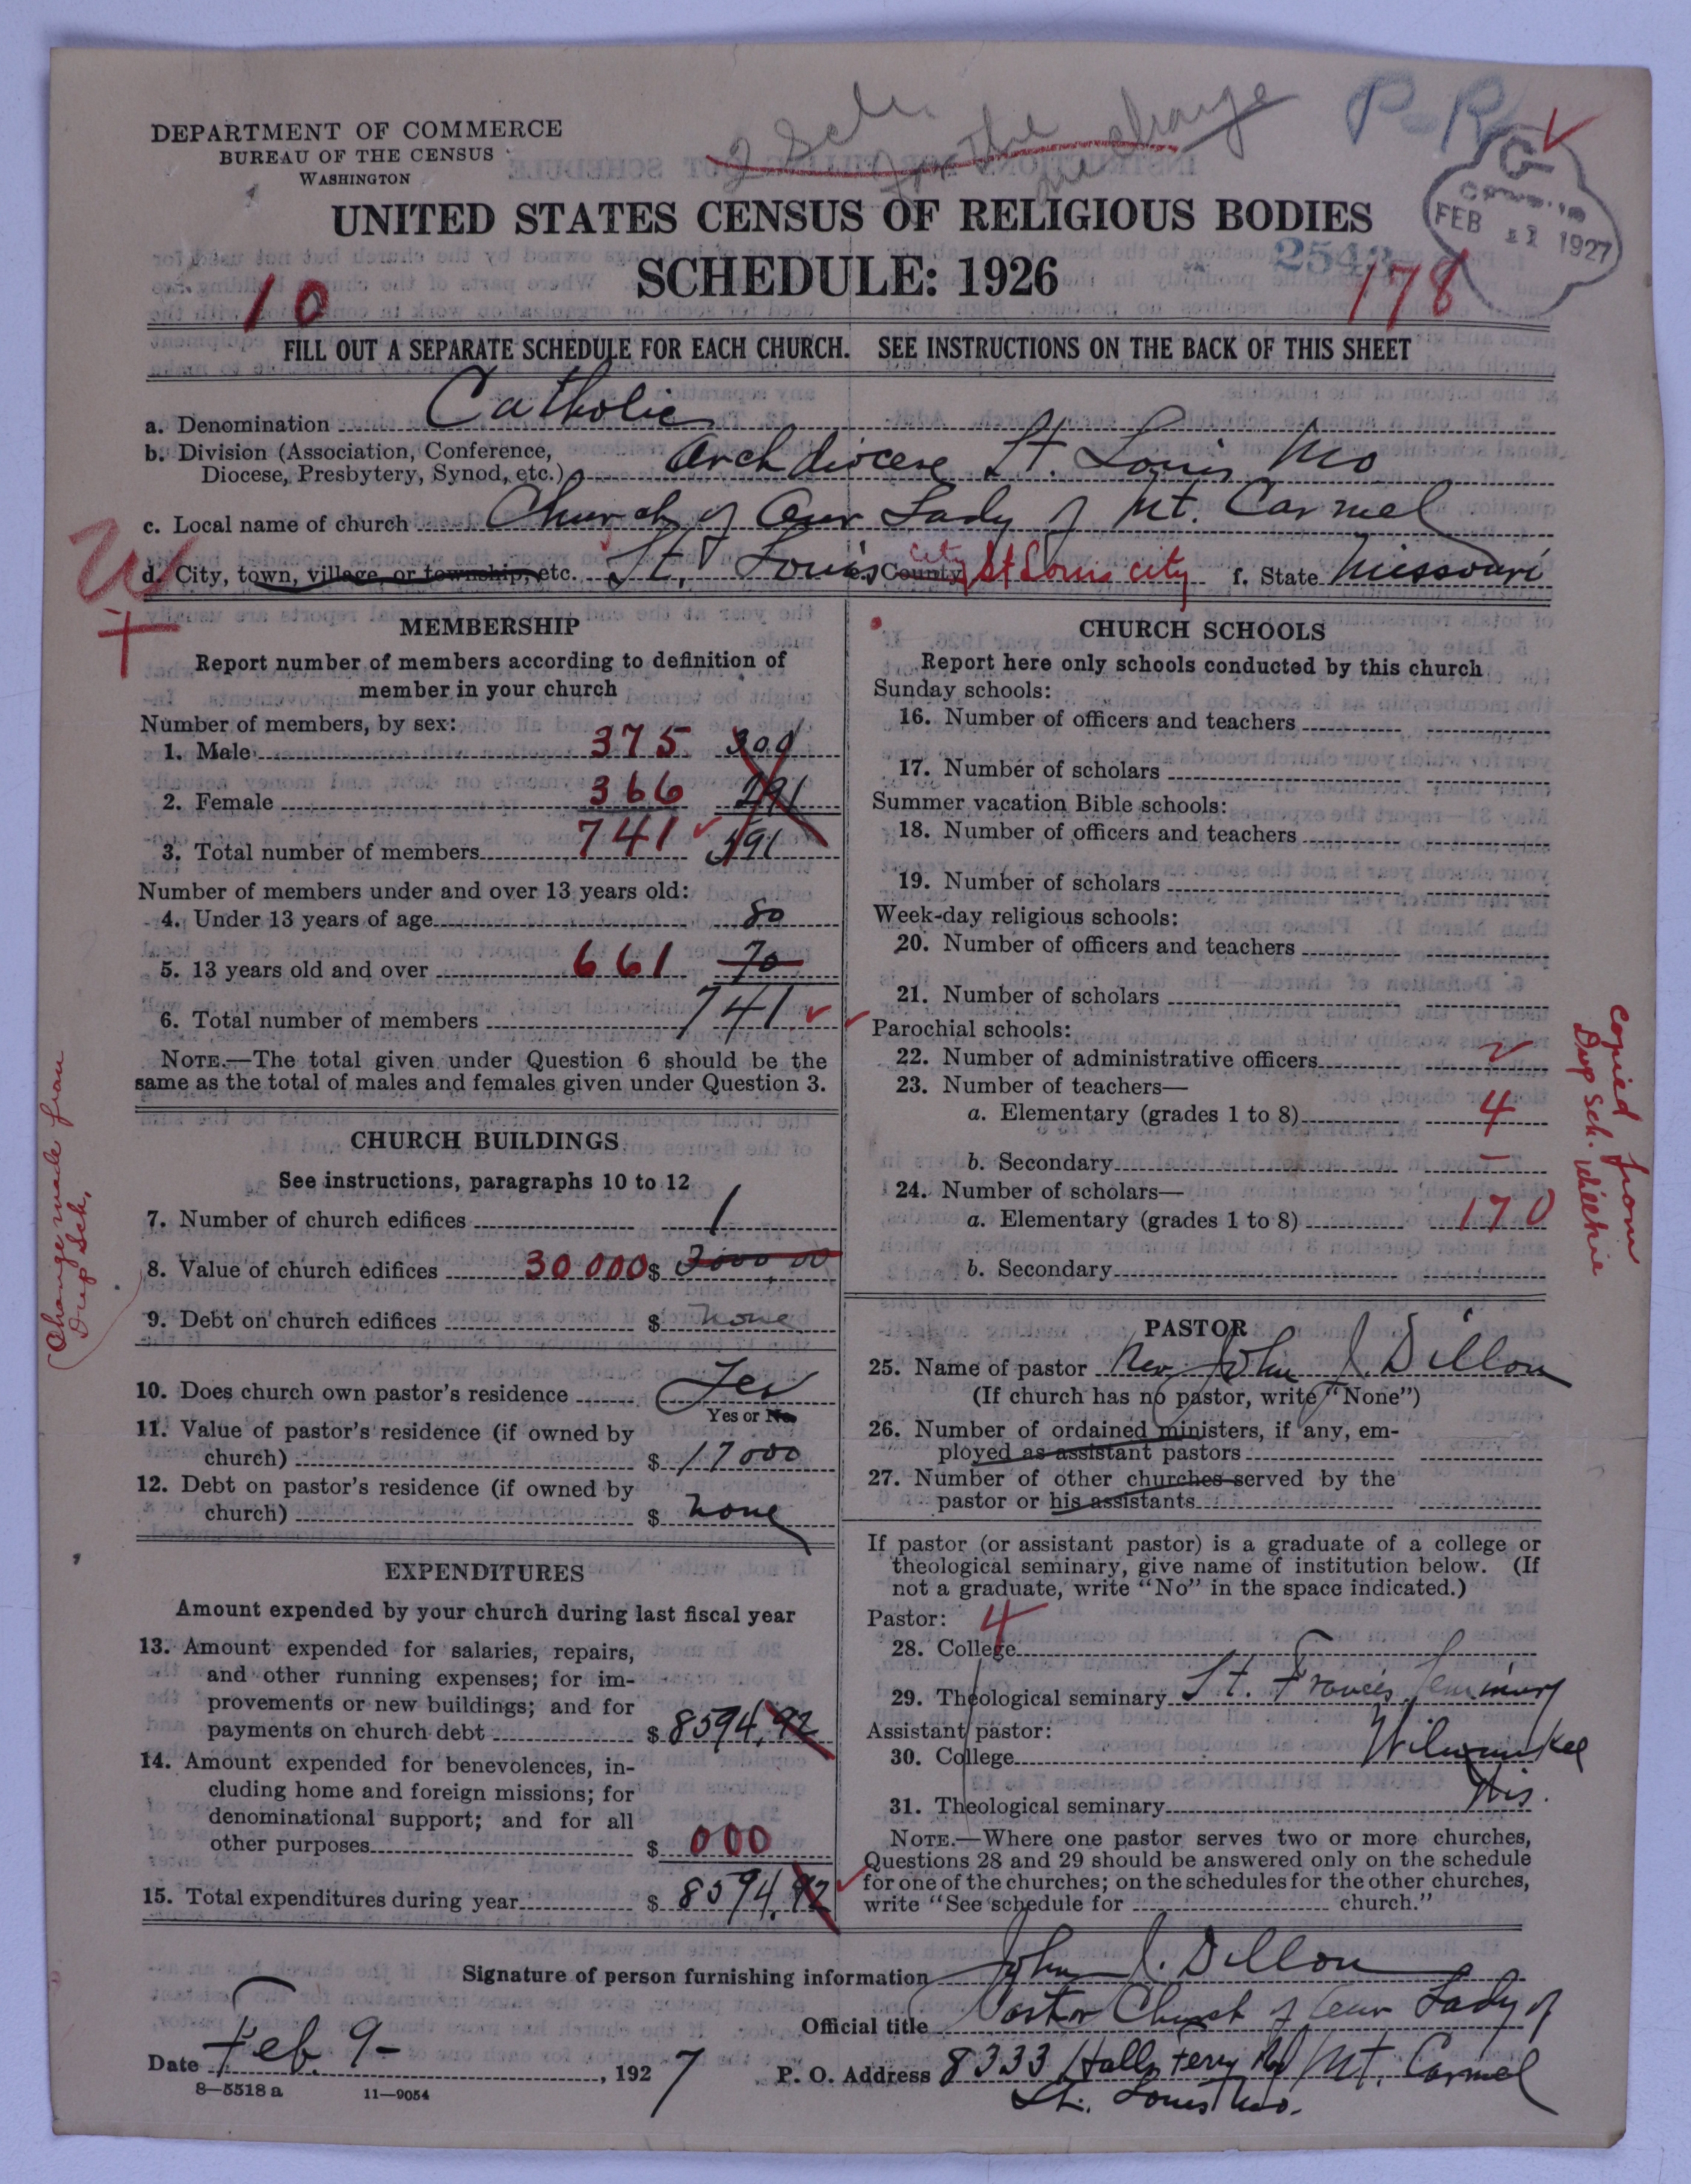 2 Sch. for the change
P-R
DEPARTMENT OF COMMERCE
BUREAU OF THE CENSUS
WASHINGTON
UNITED STATES CENSUS OF RELIGIOUS BODIES
FEB 11 1927
SCHEDULE: 1926
10
178
FILL OUT A SEPARATE SCHEDULE FOR EACH CHURCH. SEE INSTRUCTIONS ON THE BACK OF THIS SHEET
a. Denomination Catholic
b. Division (Association, Conference, Diocese, Presbytery, Synod, etc.) Archdiocese St. Louis Mo
c. Local name of church Church of Our Lady of Mt. Carmel
d. City, town, village, or township, etc. St. Louis e. County City St Louis city f. State Missouri
MEMBERSHIP
Report number of members according to definition of
member in your church
Number of members, by sex:
1. Male 375 300
2. Female 366 291
3. Total number of members 741 591
Number of members under and over 13 years old:
4. Under 13 years of age 80
5. 13 years old and over 661 70
6. Total number of members 741
NOTE.—The total given under Question 6 should be the
same as the total of males and females given under Question 3.
Change made from
Dup Sch.
CHURCH BUILDINGS
See instructions, paragraphs 10 to 12
7. Number of church edifices 1
8. Value of church edifices 30 000 $ 3000,00
9. Debt on church edifices $ none
10. Does church own pastor's residence Yes
Yes or No
11. Value of pastor's residence (if owned by
church) $ 17000
12. Debt on pastor's residence (if owned by
church) $ none
EXPENDITURES
Amount expended by your church during last fiscal year
13. Amount expended for salaries, repairs,
and other running expenses; for im-
provements or new buildings; and for
payments on church debt $ 8594.92
14. Amount expended for benevolences, in-
cluding home and foreign missions; for
denominational support; and for all
other purposes $ 000
15. Total expenditures during year $ 8594.92
CHURCH SCHOOLS
Report here only schools conducted by this church
Sunday schools:
16. Number of officers and teachers
17. Number of scholars
Summer vacation Bible schools:
18. Number of officers and teachers
19. Number of scholars
Week-day religious schools:
20. Number of officers and teachers
21. Number of scholars
Parochial schools:
22. Number of administrative officers
23. Number of teachers—
a. Elementary (grades 1 to 8) 4
b. Secondary –
24. Number of scholars—
a. Elementary (grades 1 to 8) 170
b. Secondary
Copied from
Dup Sch.
PASTOR
25. Name of pastor Rev. John J. Dillon
(If church has no pastor, write "None")
26. Number of ordained ministers, if any, em-
ployed as assistant pastors
27. Number of other churches served by the
pastor or his assistants
If pastor (or assistant pastor) is a graduate of a college or
theological seminary, give name of institution below. (If
not a graduate, write "No" in the space indicated.)
Pastor: 4
28. College
29. Theological seminary St. Francis Seminary
Assistant pastor:
30. College Milwaukee
31. Theological seminary Wis.
NOTE.—Where one pastor serves two or more churches,
Questions 28 and 29 should be answered only on the schedule
for one of the churches; on the schedules for the other churches,
write "See schedule for church."
Signature of person furnishing information John J. Dillon
Official title Pastor Church of Our Lady of
Mt. Carmel
Date Feb. 9- , 1927
P. O. Address 8333 Halls Ferry Rd
St. Louis Mo.
8—5518 a 11—9054